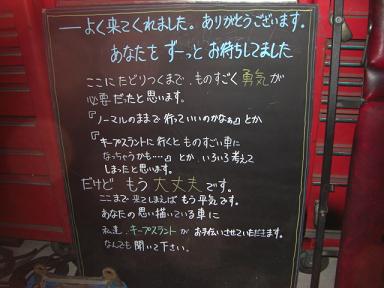 ──よく来てくれました。ありがとうございます。
あなたを ずーっと お待ちしてました
ここに たどりつくまで、ものすごく 勇気が
必要 だったと 思います。
『ノーマルのままで 行っていいのかなぁ』とか
『キープスラントに行くと ものすごい車に
なっちゃうかも…』とか いろいろ 考えて
しまったと思います。
だけど もう 大丈夫 です。
ここまで 来てしまえば もう 平気です。
あなたの 思い描いている 車に
私達 キープスラントが お手伝いさせていただきます。
なんでも 聞いて 下さい。